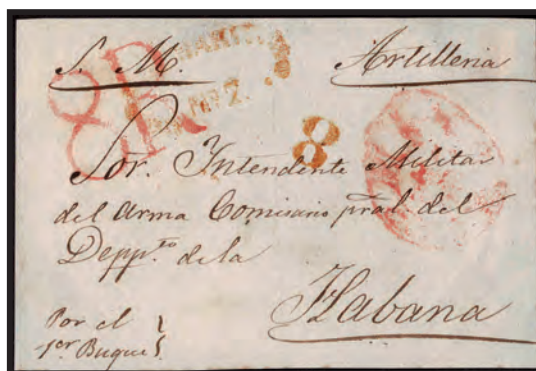 S. M. Artilleria
8R
8
Sor. Intendente Militar
del Arma Comisario pral. del
Depp.to de la
Habana
Por el
1er Buque